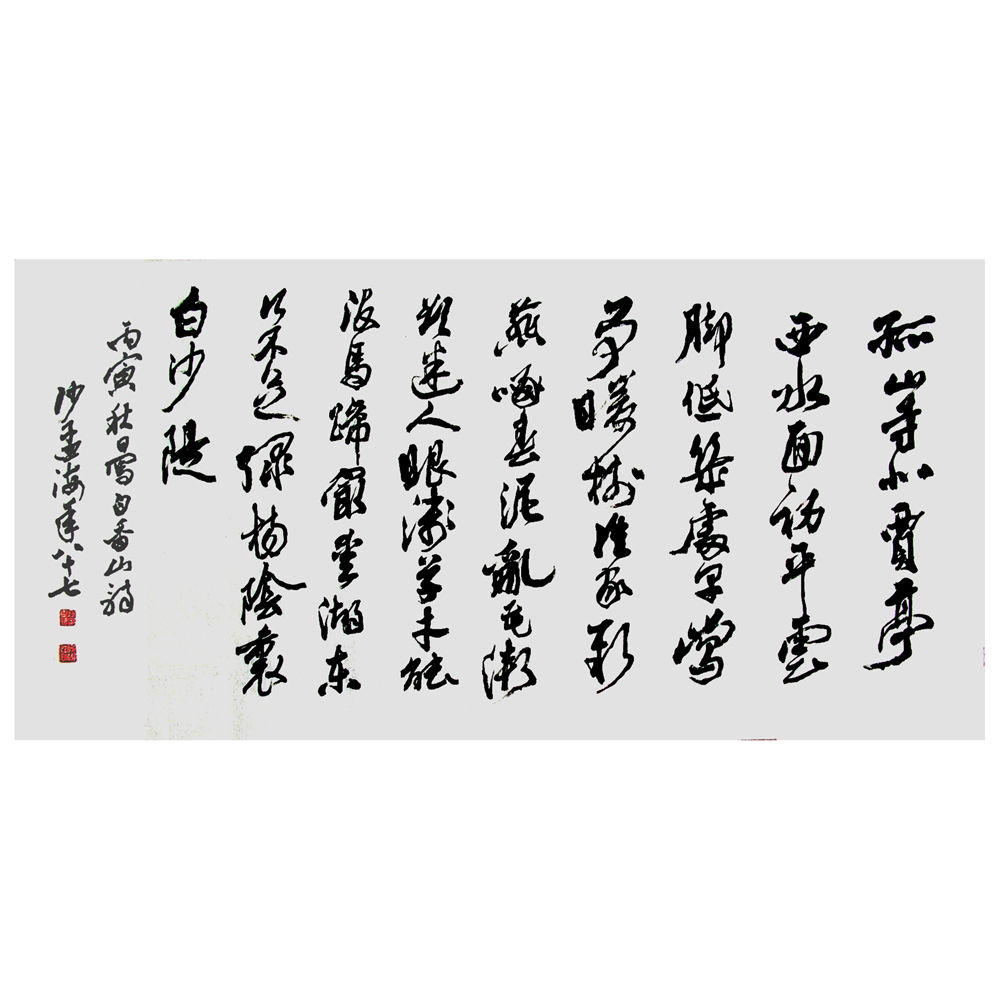 孤山寺北賈亭
西水面初平雲
脚低幾處早鶯
爭暖樹誰家新
燕啄春泥亂花漸
欲迷人眼淺草才能
没馬蹄最愛湖東
行不足綠楊陰裏
白沙隄
丙寅秋日寫白香山詩
沙孟海年八十七